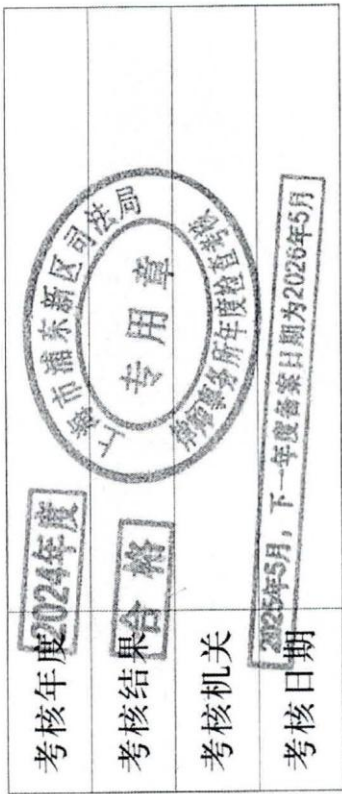 考核年度 2024年度
考核结果 合格
考核机关 上海市浦东新区司法局
专用章
律师事务所年度检查考核
考核日期 2025年5月，下一年度备案日期为2026年5月